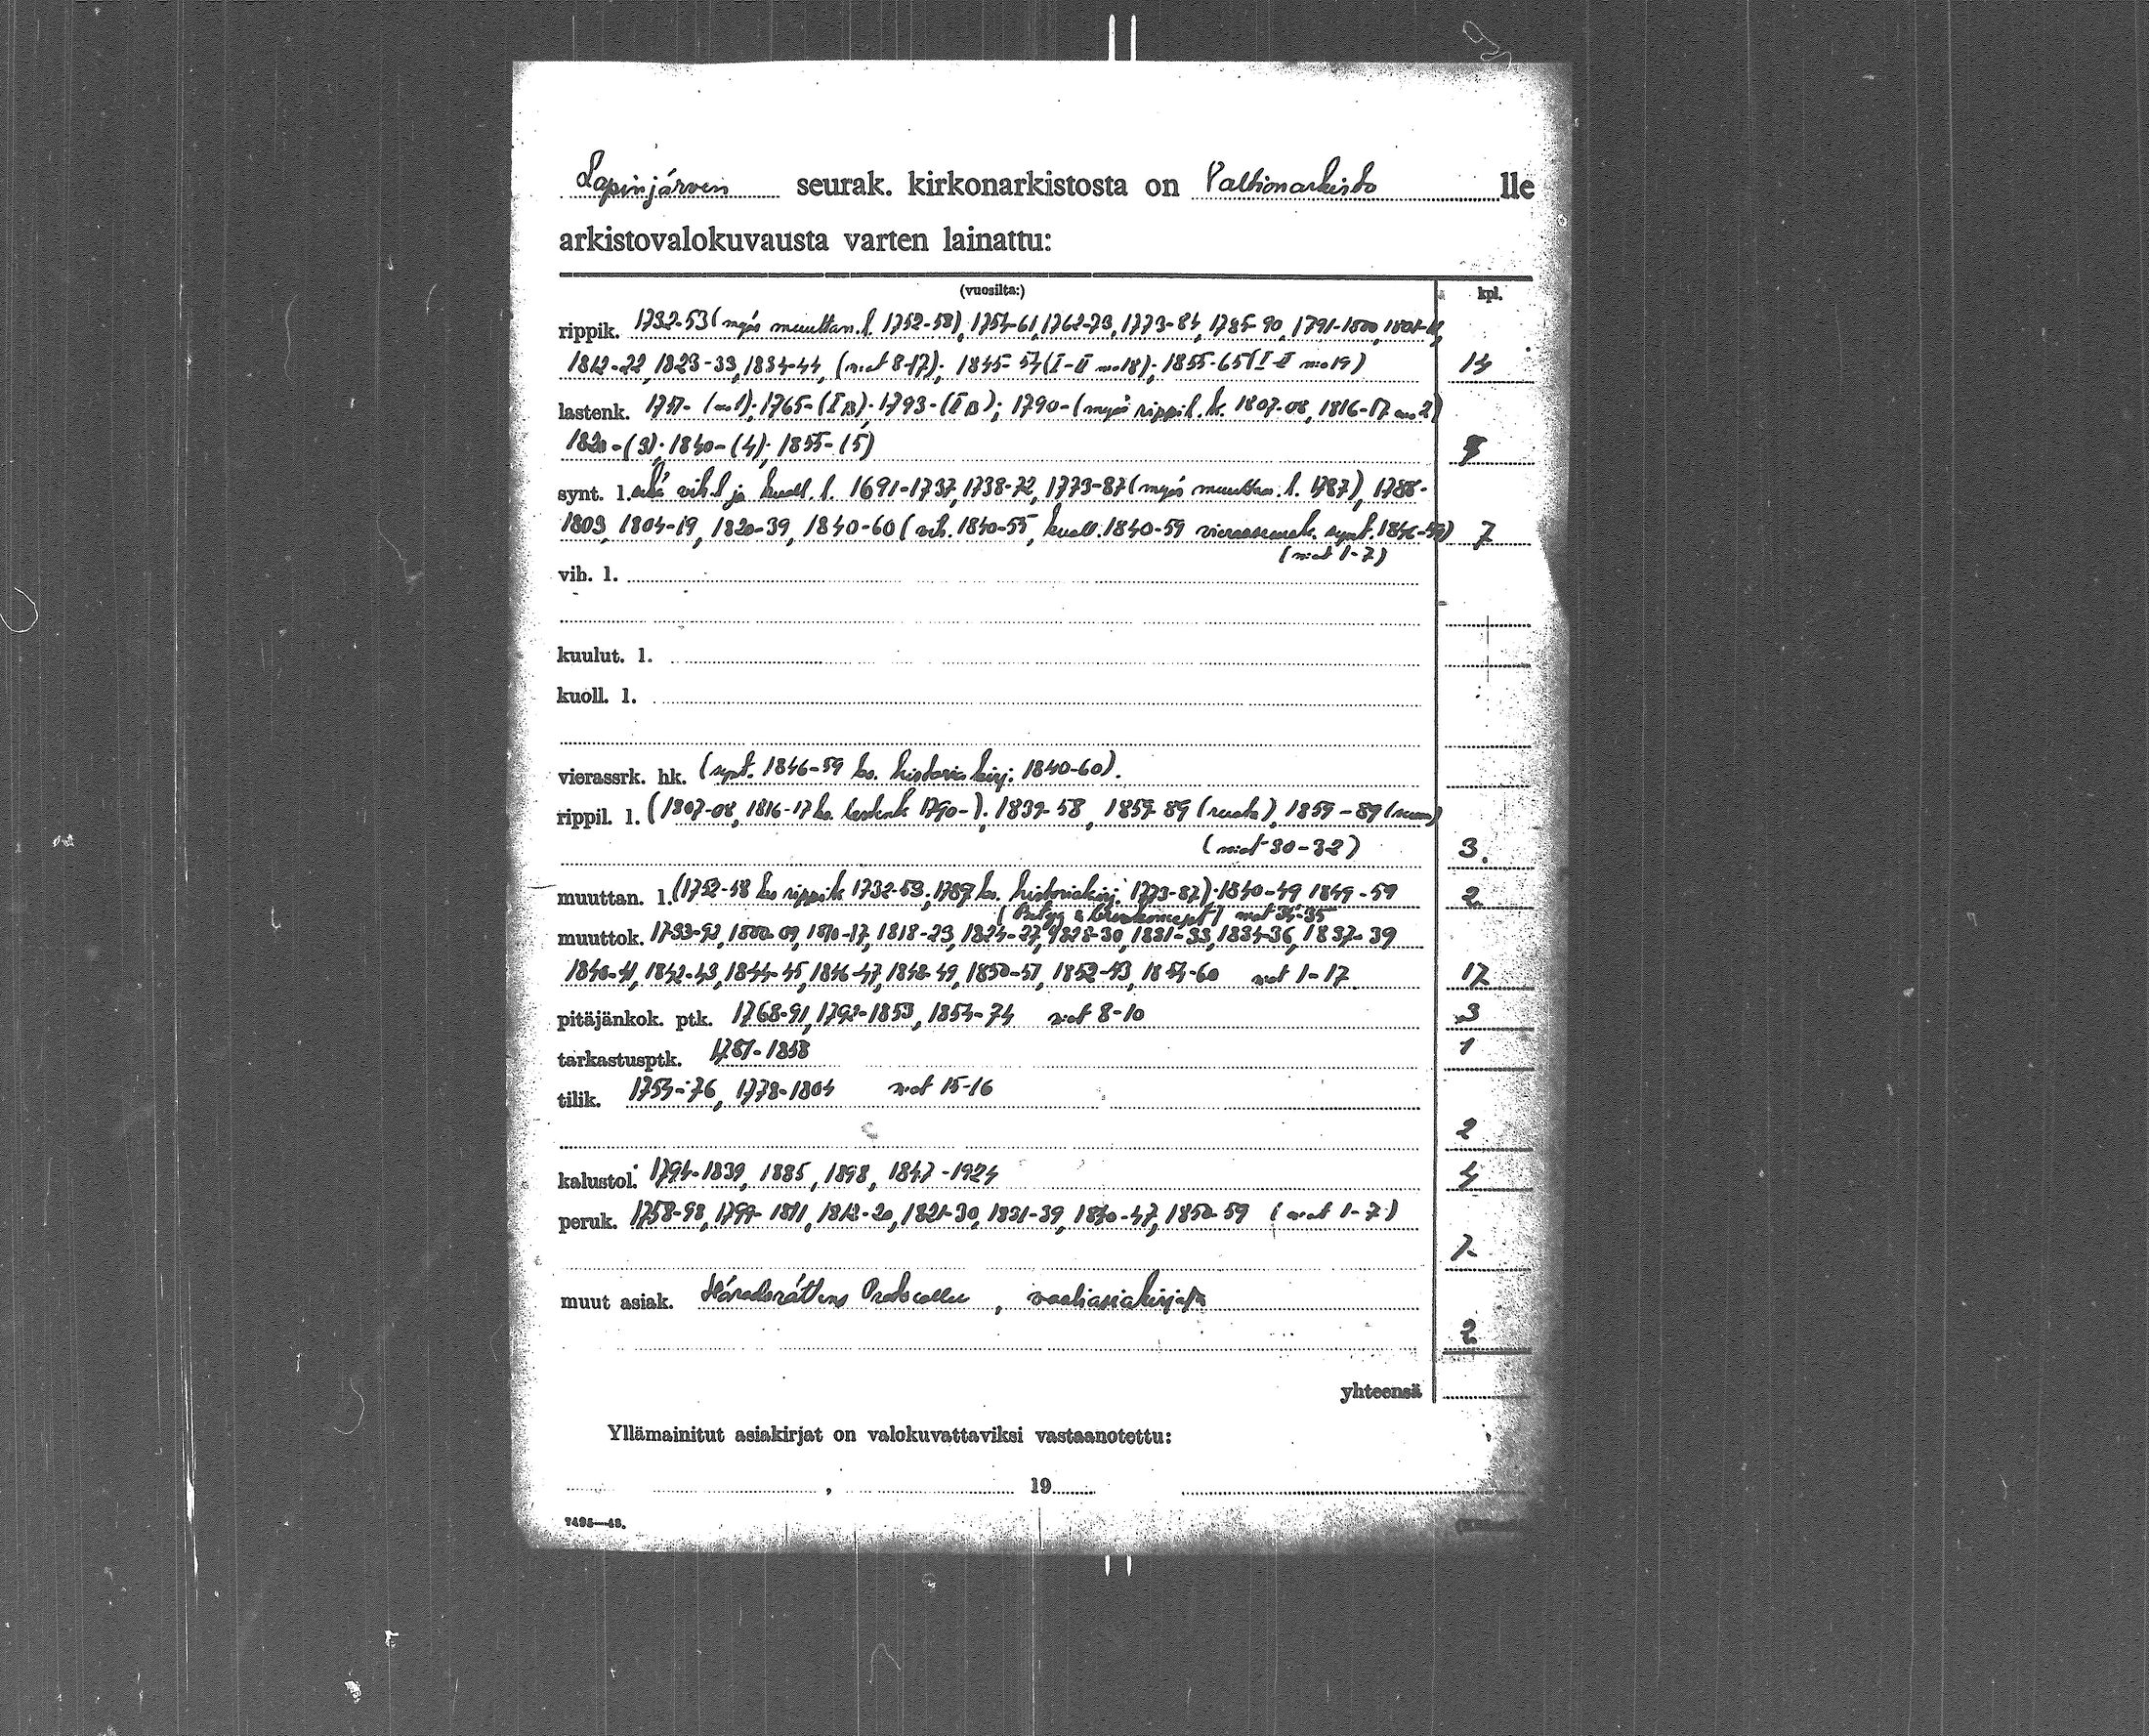 Lapinjärven seurak. kirkonarkistosta on Valtionarkisto lle
arkistovalokuvausta varten lainattu:
(vuosilta:) kpl.
rippik. 1732-53 (myös muuttan. l. 1752-58), 1754-61, 1762-73, 1773-84, 1785-90, 1791-1800, 1801-11,
1812-22, 1823-33, 1834-44, (n:ot 8-17); 1845-54 (I-II n:o 18); 1855-65 (I-II n:o 19) 14
lastenk. 1751- (n:o 1); 1765- (I B); 1793- (I B); 1790- (myös rippil. l. 1807-08, 1816-17 n:o 2)
1820- (3); 1840- (4); 1855- (5)
synt. l. sekä vih. l ja kuoll. l. 1691-1737, 1738-72, 1773-87 (myös muuttan. l. 1787), 1788-
1803, 1804-19, 1820-39, 1840-60 (vih. 1840-55, kuoll. 1840-59 vierasseurak. synt. 1846-59) 7
(n:ot 1-7)
vih. l.
kuulut. l.
kuoll. l.
vierassrk. hk. (synt. 1846-59 ks. historiakirj. 1840-60).
rippil. l. (1807-08, 1816-17 ks. lastenk 1790-); 1839-58, 1859-89 (ruots), 1859-89 (suom)
(n:ot 30-32) 3.
muuttan. l. (1752-58 ks rippik 1732-53; 1787 ks. historiakirj. 1773-87); 1840-49 1849-59 2
n:ot 34-35
muuttok. 1733-92, 1800-09, 1810-17, 1818-23, 1824-27, 1828-30, 1831-33, 1834-36, 1837-39
1840-41, 1842-43, 1844-45, 1846-47, 1848-49, 1850-51, 1852-53, 1854-60 n:ot 1-17 17
pitäjänkok. ptk. 1768-91, 1792-1853, 1854-74 n:ot 8-10 3
tarkastusptk. 1751-1858 1
tilik. 1754-76, 1778-1804 n:ot 15-16
2
kalustol. 1794-1839, 1885, 1898, 1847-1924 4
peruk. 1758-98, 1799-1811, 1812-20, 1821-30, 1831-39, 1840-47, 1850-59 (n:ot 1-7)
7
muut asiak. Häradsrättens Protocoller, vaaliasiakirjat
2
yhteensä
Yllämainitut asiakirjat on valokuvattaviksi vastaanotettu:
, 19
7495—49.